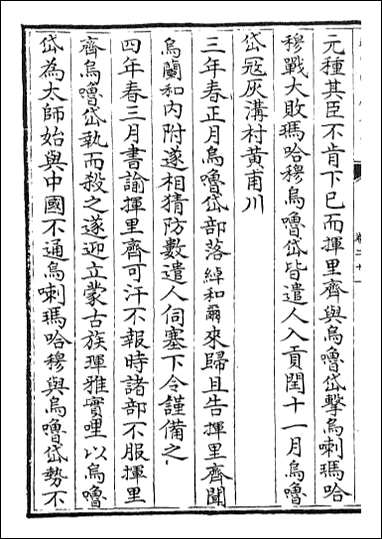 元種其臣不肯下已而揮里齊與烏嚕岱擊烏喇瑪哈
穆戰大敗瑪哈穆烏嚕岱皆遣人入貢閏十一月烏嚕
岱冦灰溝村黃甫川
三年春正月烏嚕岱部落綽和爾來歸且告揮里齊聞
烏蘭和内附遂相猜防數遣人伺塞下令謹備之
四年春三月書諭揮里齊可汗不報時諸部不服揮里
齊烏嚕岱執而殺之遂迎立蒙古族琿雅實哩以烏嚕
岱為大師始與中國不通烏喇瑪哈穆與烏嚕岱勢不
卷二十一